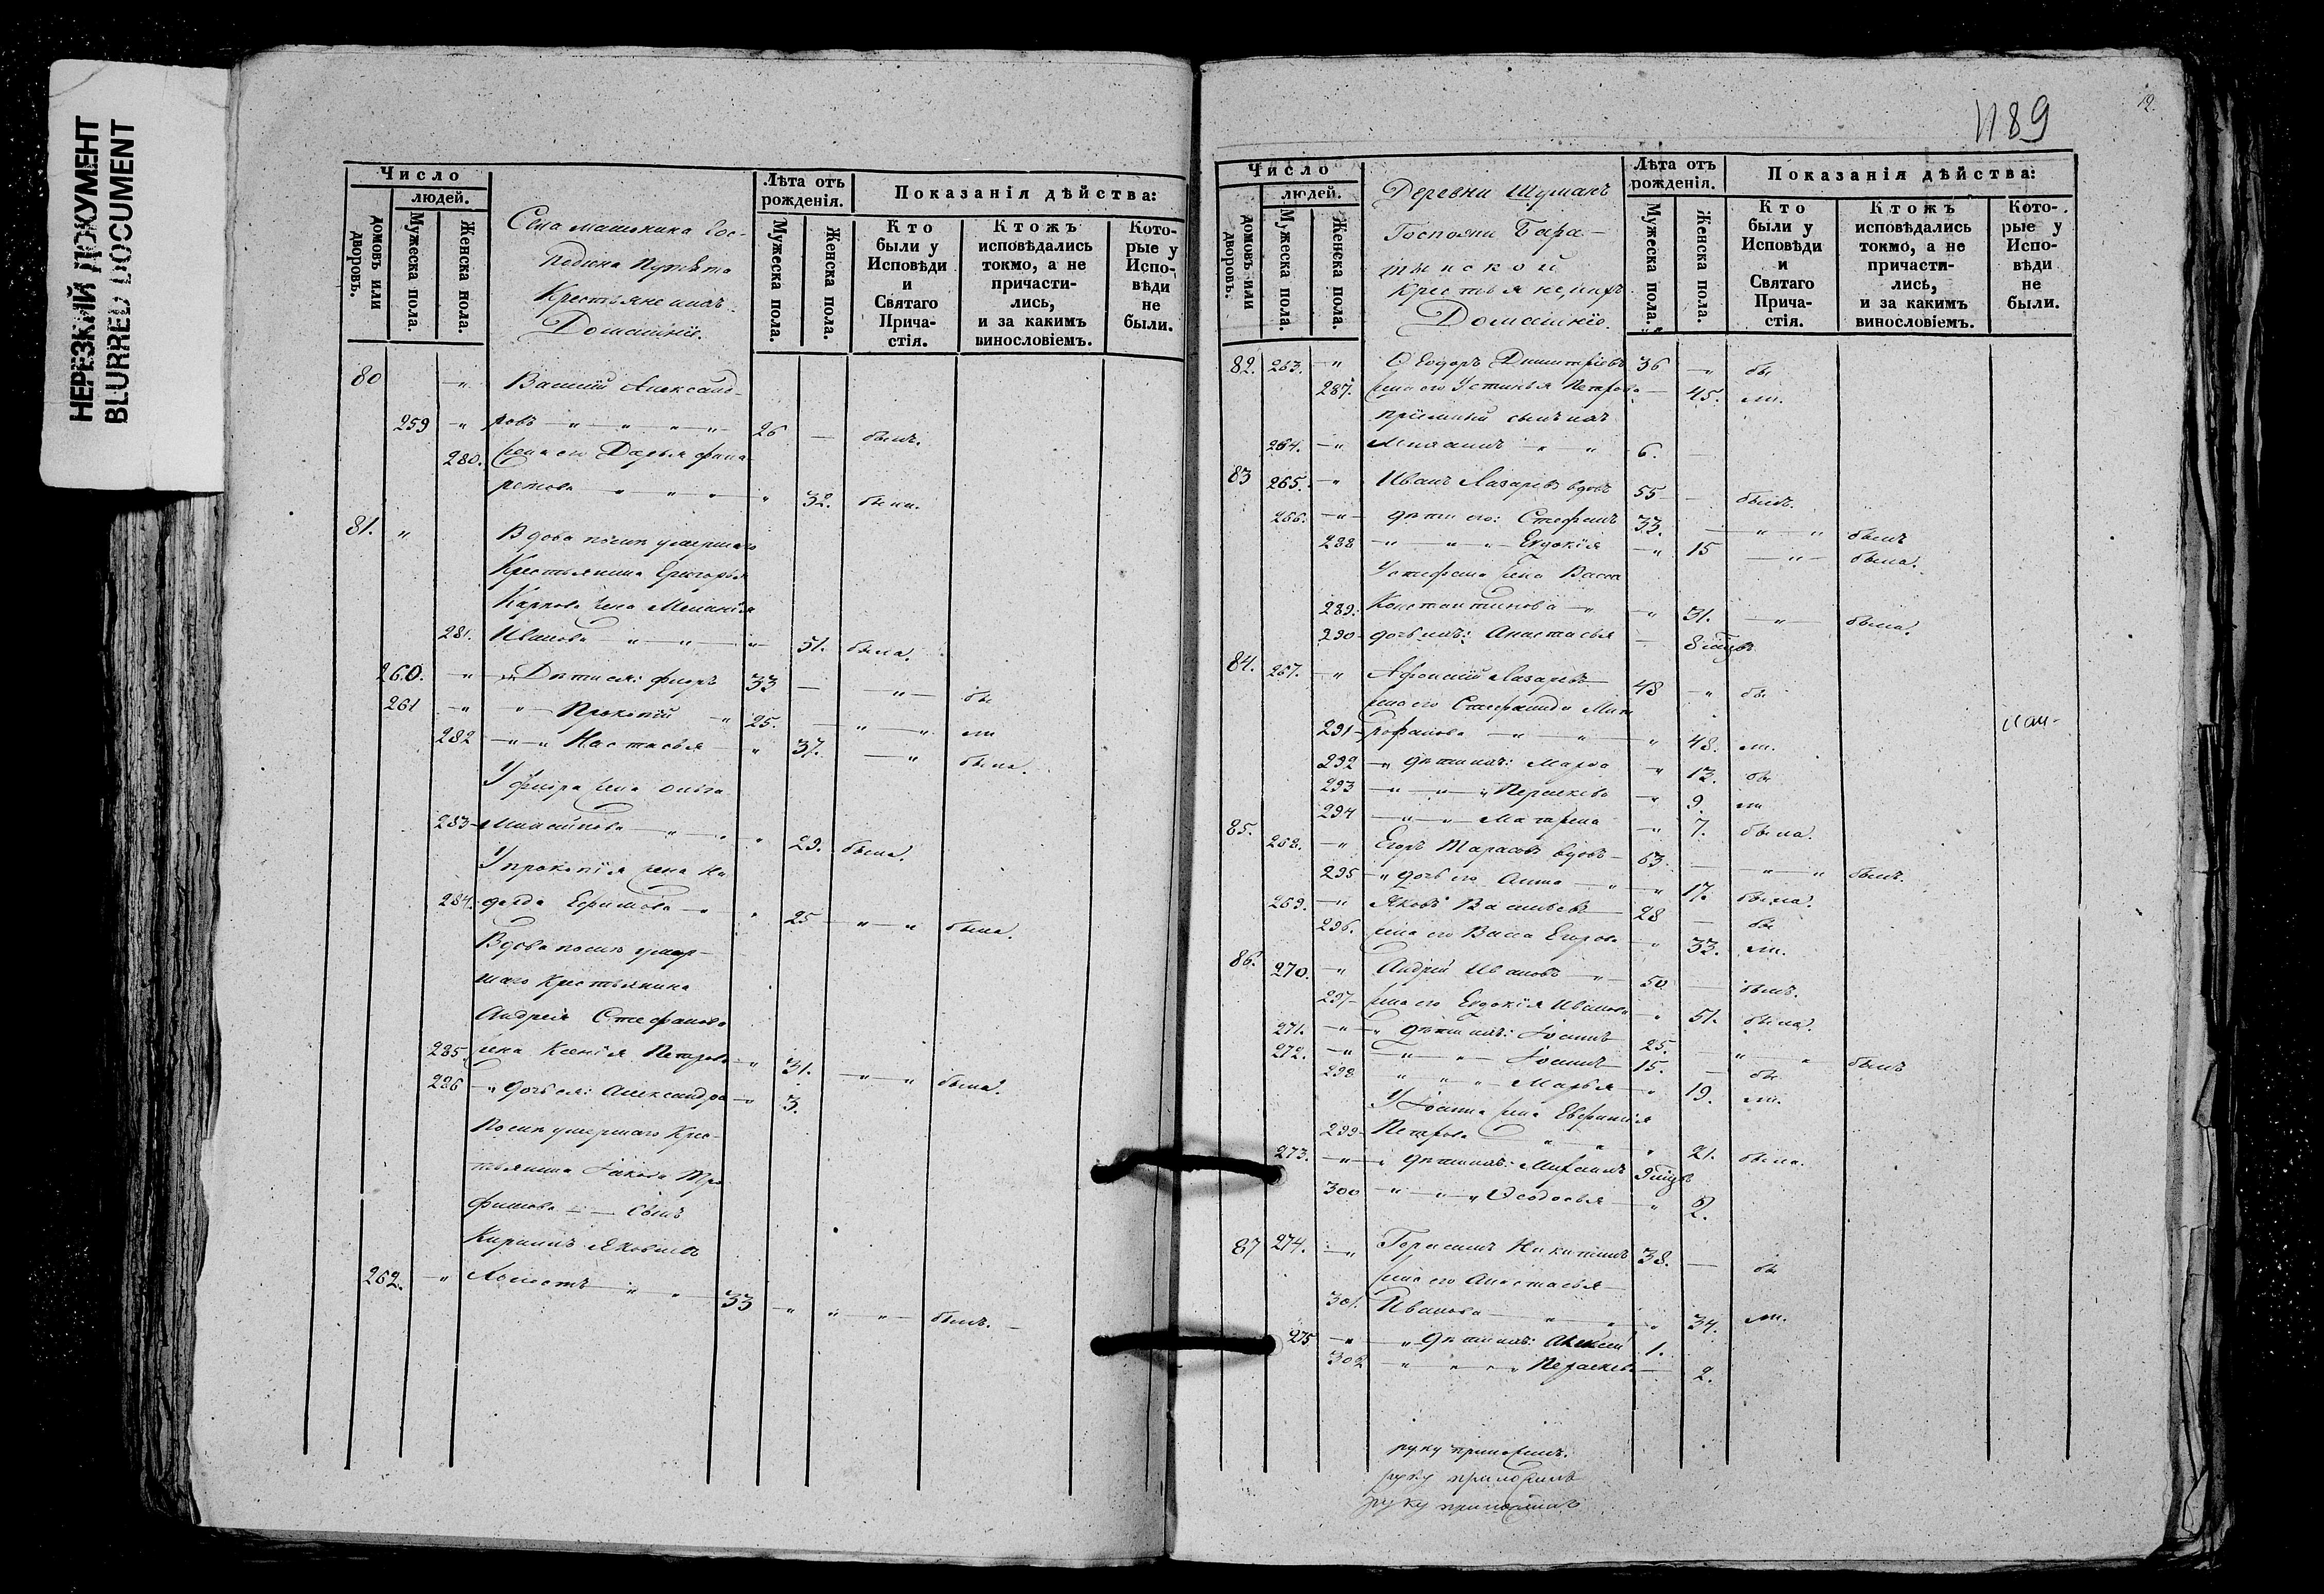 НЕРЕЗКИЙ ДОКУМЕНТ
BLURRED DOCUMENT
Число
людей.
домовъ или дворовъ.
Мужеска пола.
Женска пола.
Лѣта отъ рожденія.
Мужеска пола.
Женска пола.
Показанія дѣйства:
Кто были у Исповѣди и Святаго Прича-стія.
Ктожъ исповѣдались токмо, а не причасти-лись, и за какимъ винословіемъ.
Кото-рые у Испо-вѣди не были.
Села Машкина Гос-
подина
Крестьяне ихъ
Домашніе.
80 Василій Александ-
259 ровъ 26 былъ.
280. жена его Дарья
32. была.
81. Вдова послѣ умершаго
Крестьянина Григорья
Карпова жена Меланія
281. Иванова 51. была.
260. Дѣти ея: Фиоръ 33 бы
261 Прокопій 25. ли
282 Настасья 37. была.
У Фиора жена Ольга
283 29. была.
У Прокопія жена На
284. дежда Ефимова 25 была.
Вдова послѣ умер-
шаго Крестьянина
Андрея Стефанова
285. жена Ксенія Петрова 31. была.
286 дочь ея: Александра 3.
Послѣ умершаго Крес-
тьянина Iакова Тро
фимова — Сынъ
Кириллъ Яковлевъ
262. Холостъ 33 былъ.
1189
12.
Число
людей.
домовъ или дворовъ.
Мужеска пола.
Женска пола.
Лѣта отъ рожденія.
Мужеска пола.
Женска пола.
Показанія дѣйства:
Кто были у Исповѣди и Святаго Прича-стія.
Ктожъ исповѣдались токмо, а не причасти-лись, и за какимъ винословіемъ.
Кото-рые у Испо-вѣди не были.
Деревни Шуманъ
Госпожи Бара-
тынской
Крестьяне, ихъ
Домашніе.
82. 263. Ѳеодоръ Димитріевъ 36 бы
287. жена его Устинья Петрова 45. ли.
пріемный сынъ ихъ
264. 6.
83 265. Иванъ Лазаревъ вдовъ 55 былъ.
266. дѣти его: Стефанъ 33. былъ
288 Евдокія 15 была.
У Стефана жена Васса
289. Константинова 31. была.
290 дочь ихъ: Анастасья 8 мцвъ
84. 267. Афонасій Лазаревъ 48 бы
жена его Стефанида Мит
291 рофанова 48. ли.
292 дѣти ихъ: Марѳа 13. бы
293 Перасковья 9. ли
294 Матрена 7. была.
85. 268. Егоръ Тарасовъ вдовъ 63. былъ.
295 дочь его Анна 17. была.
269. Яковъ Васильевъ 28 бы
296. жена его Васса Егорова 33. ли.
86. 270. Андрей Ивановъ 50 былъ.
297 жена его Евдокія Иванова 51. была.
271. дѣти ихъ: Iоаннъ 25. былъ
272. Iоаннъ 15. бы
298 Марья 19. ли.
У Iоанна жена Евфимія
299 Петрова 21. была.
273. дѣти ихъ: Михаилъ 9 мцвъ
300 Ѳеодосья 2.
87 274. Герасимъ Никитинъ 38. бы
жена его Анастасья
301. Иванова 34. ли.
275 дѣти ихъ: Алексей 1.
302 Перасковья 2.
руку приложилъ.
руку приложилъ
руку приложилъ